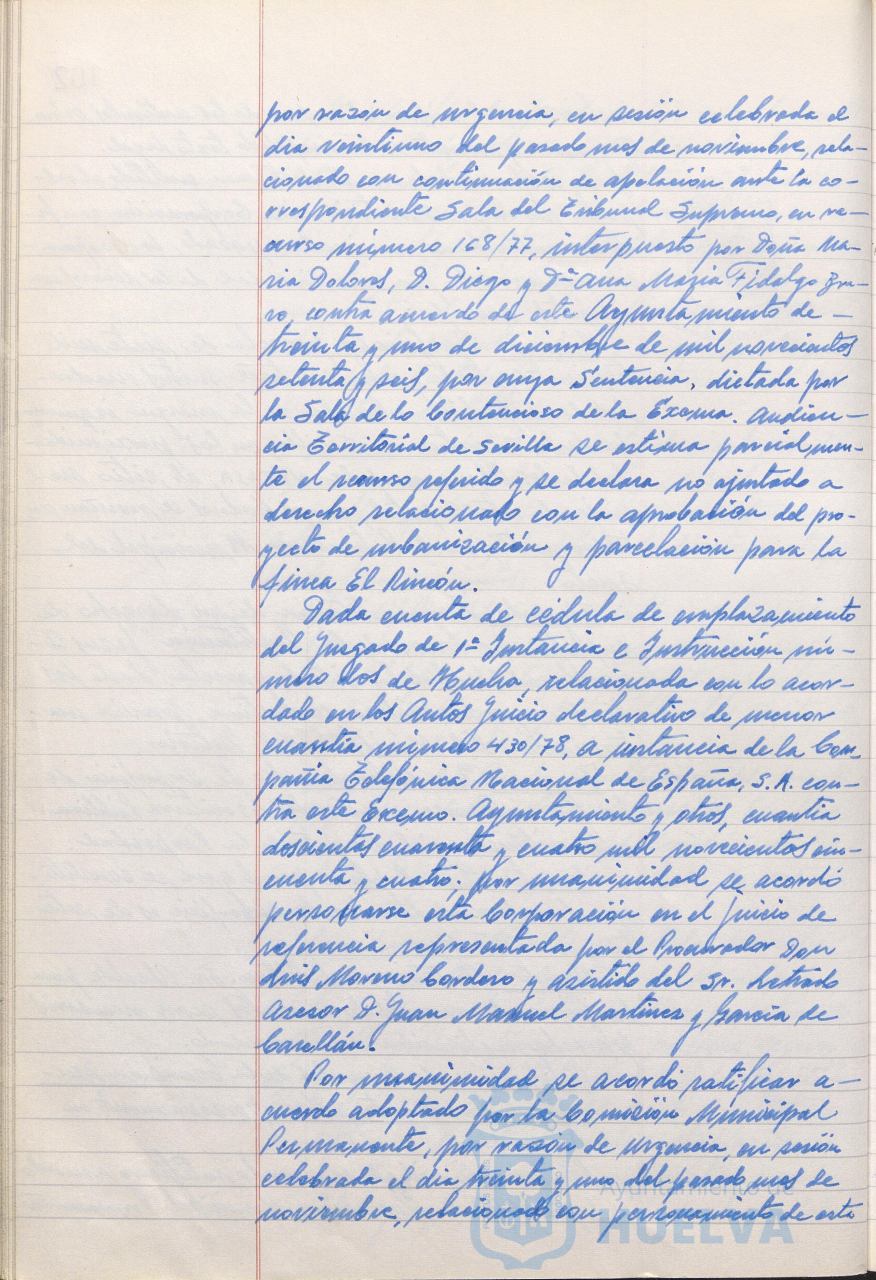 por razón de urgencia, en sesión celebrada el
dia veintiuno del pasado mes de noviembre, rela-
cionado con continuación de apelación ante la co-
rrespondiente Sala del Tribunal Supremo, en re-
curso número 168/77, interpuesto por Doña Ma-
ria Dolores, D. Diego y Dª Ana Maria Fidalgo
ro, contra acuerdo de este Ayuntamiento de -
treinta y uno de diciembre de mil novecientos
setenta y seis, por cuya Sentencia, dictada por
la Sala de lo Contencioso de la Excma. Audien-
cia Territorial de Sevilla se estima parcialmen-
te el recurso referido y se declara no ajustado a
derecho relacionado con la aprobación del pro-
yecto de urbanización y parcelación para la
finca El Rincón.
Dada cuenta de cédula de emplazamiento
del Juzgado de 1ª Instancia e Instrucción nú-
mero dos de Huelva, relacionada con lo acor-
dado en los Autos Juicio declarativo de menor
cuantia número 430/78, a instancia de la Com-
pañia Telefónica Nacional de España, S.A. con-
tra este Excmo. Ayuntamiento y otros, cuantia
doscientas cuarenta y cuatro mil novecientos cin-
cuenta y cuatro; por unanimidad se acordó
personarse esta Corporación en el juicio de
referencia representada por el Procurador Don
Luis Moreno Cordero y asistido del Sr. Letrado
Asesor D. Juan Manuel Martinez y Garcia de
Casellán.
Por unanimidad se acordó ratificar a-
cuerdo adoptado por la Comisión Municipal
Permanente, por razón de urgencia, en sesión
celebrada el dia treinta y uno del pasado mes de
noviembre, relacionado con personamiento de este
Ayuntamiento de
HUELVA